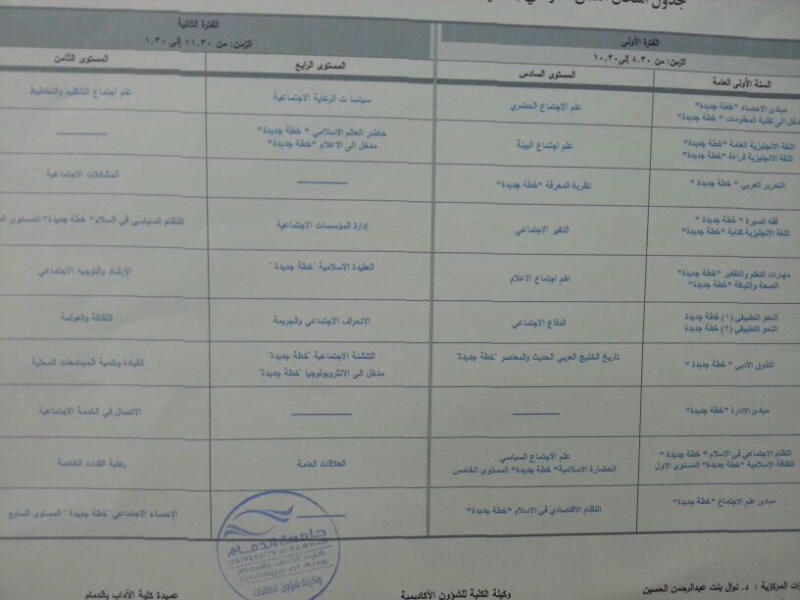 الفترة الأولى
الزمن: من ٨.٣٠ إلى ١٠.٣٠
الفترة الثانية
الزمن: من ١١.٣٠ إلى ١.٣٠
السنة الأولى العامة
المستوى السادس
المستوى الرابع
المستوى الثامن
مبادئ الاحصاء "خطة جديدة"
مدخل الى تقنية المعلومات "خطة جديدة"
علم الاجتماع الحضري
سياسات الرعاية الاجتماعية
علم اجتماع التنظيم والتخطيط
اللغة الانجليزية العامة "خطة جديدة"
اللغة الانجليزية قراءة "خطة جديدة"
علم اجتماع البيئة
حاضر العالم الاسلامي "خطة جديدة"
مدخل الى الاعلام "خطة جديدة"
التحرير العربي "خطة جديدة"
نظرية المعرفة "خطة جديدة"
المشكلات الاجتماعية
فقه السيرة "خطة جديدة"
اللغة الانجليزية كتابة "خطة جديدة"
التغير الاجتماعي
إدارة المؤسسات الاجتماعية
النظام السياسي في السلام "خطة جديدة" المستوى
مهارات التعلم والتفكير "خطة جديدة"
الصحة واللياقة "خطة جديدة"
علم اجتماع الاعلام
العقيدة الاسلامية "خطة جديدة"
الإرشاد والتوجيه الاجتماعي
النحو التطبيقي (١) خطة جديدة
النحو التطبيقي (٢) خطة جديدة
الدفاع الاجتماعي
الانحراف الاجتماعي والجريمة
الثقافة والعولمة
التذوق الأدبي "خطة جديدة"
تاريخ الخليج العربي الحديث والمعاصر "خطة جديدة"
التنشئة الاجتماعية "خطة جديدة"
مدخل الى الانثروبولوجيا "خطة جديدة"
القيادة وتنمية المجتمعات المحلية
مبادئ الادارة "خطة جديدة"
الاتصال في الخدمة الاجتماعية
النظام الاجتماعي في الاسلام "خطة جديدة"
الثقافة الاسلامية "خطة جديدة" المستوى الاول
علم الاجتماع السياسي
الحضارة الاسلامية "خطة جديدة" المستوى الخامس
العلاقات العامة
رعاية الفئات الخاصة
مبادئ علم الاجتماع "خطة جديدة"
النظام الاقتصادي في الاسلام "خطة جديدة"
الإحصاء الاجتماعي "خطة جديدة" المستوى السابع
جامعة الدمام
UNIVERSITY OF DAMMAM
كلية الآداب بالدمام
College of Arts
وكيلة شؤون الطالبات
المركزية : د. نوال بنت عبدالرحمن الحسين
وكيلة الكلية للشؤون الأكاديمية
عميدة كلية الآداب بالدمام